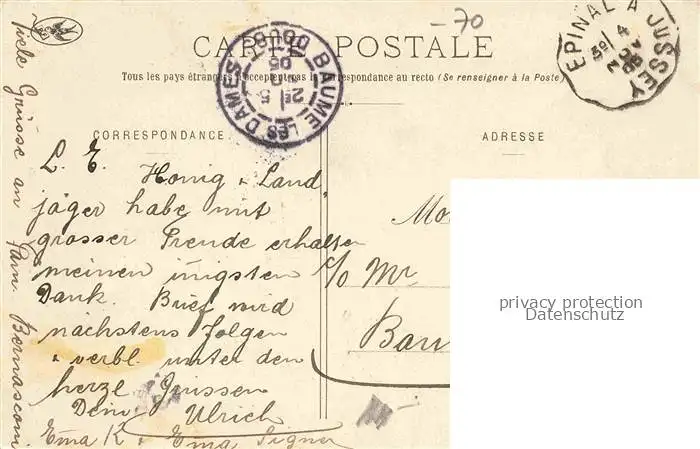 -70
CARTE POSTALE
Tous les pays étrangers n'acceptent pas la correspondance au recto (Se renseigner à la Poste)
EPINAL A JUSSEY
BAUME LES DAMES DOUBS
CORRESPONDANCE
ADRESSE
L. E. Honig & Land
jäger habe mit
grosser Freude erhalten
meinen innigsten
Dank. Brief wird
nächstens folgen
& verbl. unter den
herzl Grüssen
Dein Ulrich
Ema K & Ema Signer
Viele Grüsse an Fam. Bernasconi
c/o Mr
Bau
privacy protection
Datenschutz